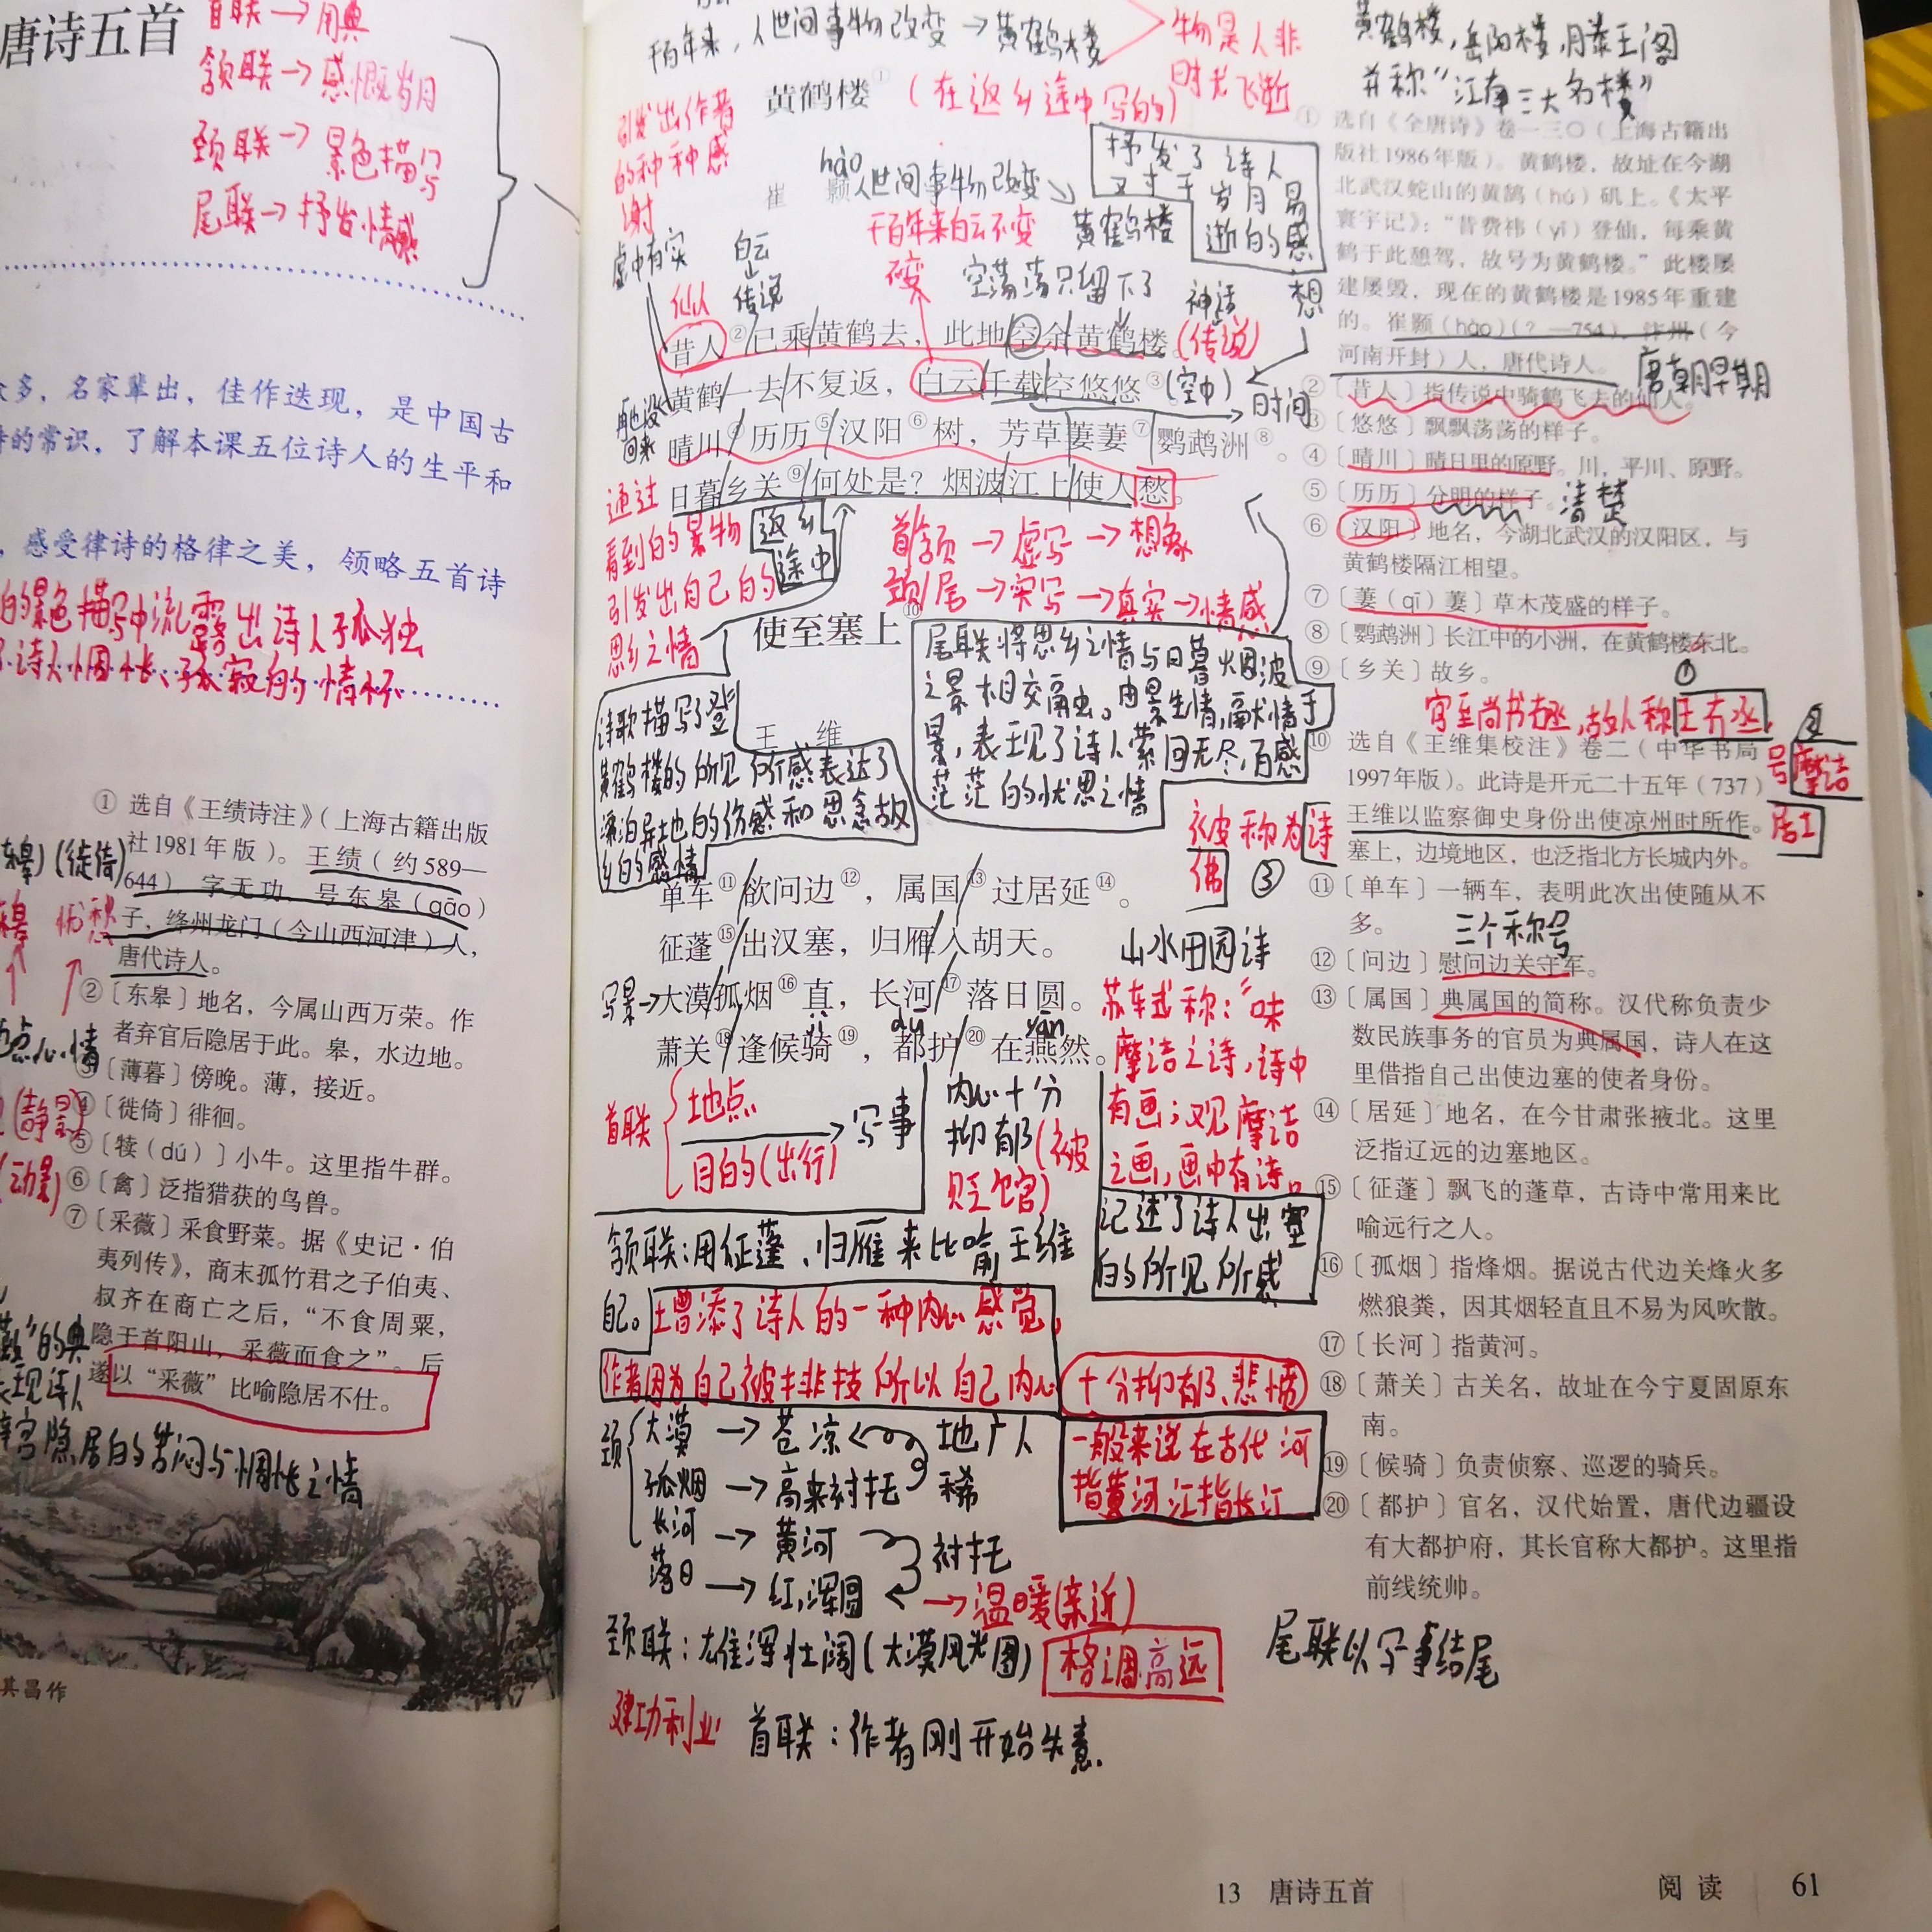 唐诗五首
首联→用典
颔联→感慨岁月
颈联→景色描写
尾联→抒发情感
众多，名家辈出，佳作迭现，是中国古
诗的常识，了解本课五位诗人的生平和
，感受律诗的格律之美，领略五首诗
的景色描写中流露出诗人孤独
诗人惆怅、孤寂的情怀
① 选自《王绩诗注》（上海古籍出版
社1981年版）。王绩（约589—
644），字无功，号东皋（gāo）
子，绛州龙门（今山西河津）人，
唐代诗人。
②〔东皋〕地名，今属山西万荣。作
者弃官后隐居于此。皋，水边地。
③〔薄暮〕傍晚。薄，接近。
④〔徙倚〕徘徊。
⑤〔犊（dú）〕小牛。这里指牛群。
⑥〔禽〕泛指猎获的鸟兽。
⑦〔采薇〕采食野菜。据《史记·伯
夷列传》，商末孤竹君之子伯夷、
叔齐在商亡之后，“不食周粟，
隐于首阳山，采薇而食之”。后
遂以“采薇”比喻隐居不仕。
(徙倚)
忧愁
(静景)
(动景)
的典
表现诗人
辞官隐居的苦闷与惆怅之情
其昌作
千百年来，人世间事物改变→黄鹤楼
物是人非
时光飞逝
黄鹤楼①
(在返乡途中写的)
引发出作者
的种种感
谢
崔 颢
hào
人世间事物改变
黄鹤楼
抒发了诗人
对于岁月易
逝的感
想
虚中有实
白云
传说
千百年来白云不变
不变
空荡荡只留下了
神话
仙人
昔人②已乘黄鹤去，此地空余黄鹤楼。
(传说)
黄鹤一去不复返，白云千载空悠悠③。
(空中)
时间
再也没
回来
晴川④历历⑤汉阳⑥树，芳草萋萋⑦鹦鹉洲⑧。
日暮乡关⑨何处是？烟波江上使人愁。
通过
看到的景物
引发出自己的
思乡之情
返乡
途中
首颔→虚写→想象
颈尾→实写→真实→情感
使至塞上⑩
王 维
尾联将思乡之情与日暮烟波
之景相交融。由景生情，融情于
景，表现了诗人萦回无尽，百感
茫茫的忧思之情
诗歌描写了登
黄鹤楼的所见所感表达了
漂泊异地的伤感和思念故
乡的感情
被称为诗
佛 ③
单车⑪欲问边⑫，属国⑬过居延⑭。
征蓬⑮出汉塞，归雁入胡天。
写景→大漠孤烟⑯直，长河⑰落日圆。
萧关⑱逢候骑⑲，都护⑳在燕然。
jì
dū
yān
山水田园诗
苏轼称：“味
摩诘之诗，诗中
有画；观摩诘
之画，画中有诗。
记述了诗人出塞
的所见所感
首联
地点
目的(出行)
→写事
内心十分
抑郁(被
贬官)
颔联：用征蓬、归雁来比喻王维
自己。增添了诗人的一种内心感觉，
作者因为自己被排挤所以自己内心
十分抑郁、悲愤
颈
大漠→苍凉
孤烟→高来衬托
地广人
稀
长河→黄河
落日→红,浑圆
衬托
→温暖(亲近)
一般来说在古代河
指黄河 江指长江
颈联：雄浑壮阔(大漠风光图)
格调高远
建功利业
首联：作者刚开始失意.
尾联以写事结尾
黄鹤楼，岳阳楼，月泰王阁
并称“江南三大名楼”
① 选自《全唐诗》卷一三〇（上海古籍出
版社1986年版）。黄鹤楼，故址在今湖
北武汉蛇山的黄鹄（hú）矶上。《太平
寰宇记》：“昔费祎（yī）登仙，每乘黄
鹤于此憩驾，故号为黄鹤楼。”此楼屡
建屡毁，现在的黄鹤楼是1985年重建
的。崔颢（hào）（？—754），汴州（今
河南开封）人，唐代诗人。
唐朝早期
②〔昔人〕指传说中骑鹤飞去的仙人。
③〔悠悠〕飘飘荡荡的样子。
④〔晴川〕晴日里的原野。川，平川、原野。
⑤〔历历〕分明的样子。
清楚
⑥〔汉阳〕地名，今湖北武汉的汉阳区，与
黄鹤楼隔江相望。
⑦〔萋（qī）萋〕草木茂盛的样子。
⑧〔鹦鹉洲〕长江中的小洲，在黄鹤楼东北。
⑨〔乡关〕故乡。
①
官至尚书右丞，故人称王右丞，
②
号摩诘
居士
⑩ 选自《王维集校注》卷二（中华书局
1997年版）。此诗是开元二十五年（737）
王维以监察御史身份出使凉州时所作。
塞上，边境地区，也泛指北方长城内外。
⑪〔单车〕一辆车，表明此次出使随从不
多。
三个称号
⑫〔问边〕慰问边关守军。
⑬〔属国〕典属国的简称。汉代称负责少
数民族事务的官员为典属国，诗人在这
里借指自己出使边塞的使者身份。
⑭〔居延〕地名，在今甘肃张掖北。这里
泛指辽远的边塞地区。
⑮〔征蓬〕飘飞的蓬草，古诗中常用来比
喻远行之人。
⑯〔孤烟〕指烽烟。据说古代边关烽火多
燃狼粪，因其烟轻直且不易为风吹散。
⑰〔长河〕指黄河。
⑱〔萧关〕古关名，故址在今宁夏固原东
南。
⑲〔候骑〕负责侦察、巡逻的骑兵。
⑳〔都护〕官名，汉代始置，唐代边疆设
有大都护府，其长官称大都护。这里指
前线统帅。
13 唐诗五首
阅读
61